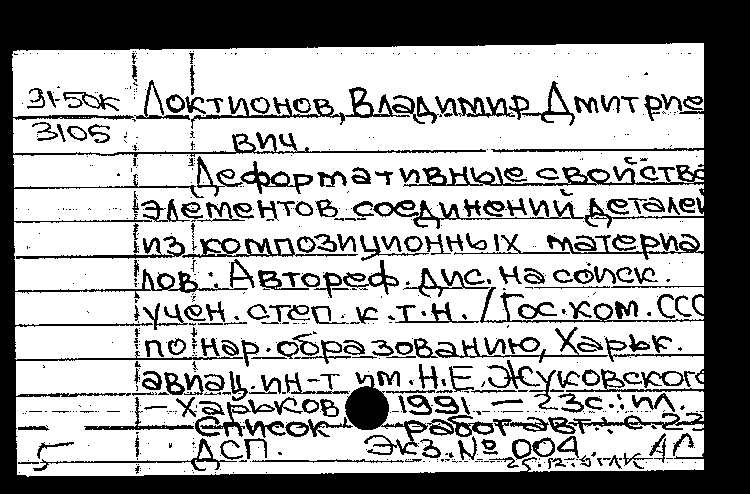 31-50к Локтионов, Владимир Дмитрие
3105 вич.
Деформативные свойства
элементов соединений деталей
из композиционных материа
лов : Автореф. дис. на соиск.
учен. степ. к.т.н. / Гос. ком. ССС
по нар. образованию, Харьк.
авиац. ин-т им. Н.Е. Жуковского
— Харьков 1991. — 23с. : ил.
Список работ авт.: с. 23
5 ДСП. Экз. № 004.